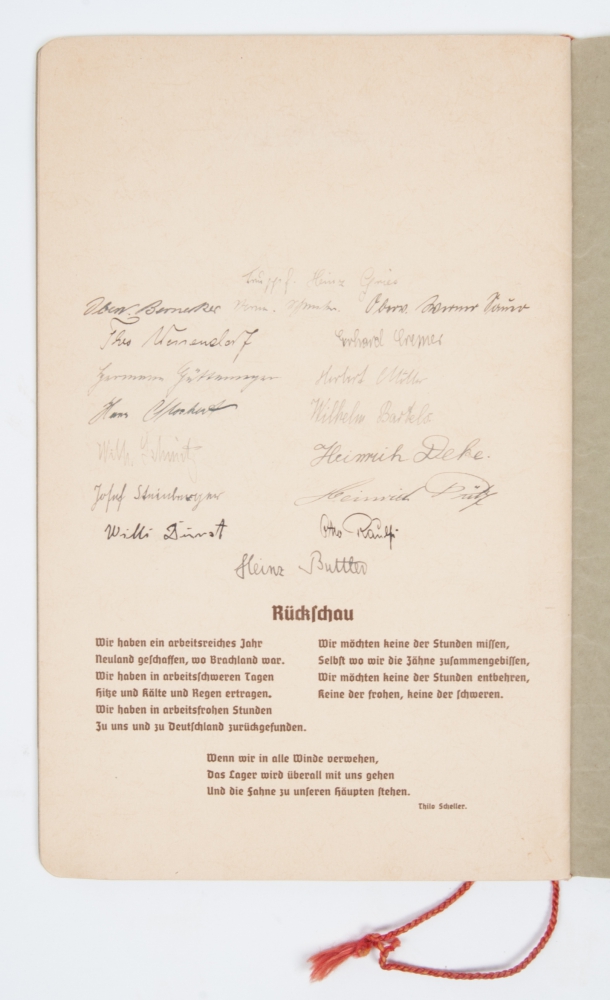 Heinz
Oberv. Bernecker Oberv. Werner Sauer
Theo Erhard Cremer
Hermann Herbert Möller
Hans Wilhelm Bartels
Wilh. Schmitz Heinrich Deke.
Josef Steinberger Heinrich
Willi Durst Otto
Heinz Buttler
Rückschau
Wir haben ein arbeitsreiches Jahr
Neuland geschaffen, wo Brachland war.
Wir haben in arbeitsschweren Tagen
Hitze und Kälte und Regen ertragen.
Wir haben in arbeitsfrohen Stunden
Zu uns und zu Deutschland zurückgefunden.
Wir möchten keine der Stunden missen,
Selbst wo wir die Zähne zusammengebissen,
Wir möchten keine der Stunden entbehren,
Keine der frohen, keine der schweren.
Wenn wir in alle Winde verwehen,
Das Lager wird überall mit uns gehen
Und die Fahne zu unseren Häupten stehen.
Thilo Scheller.